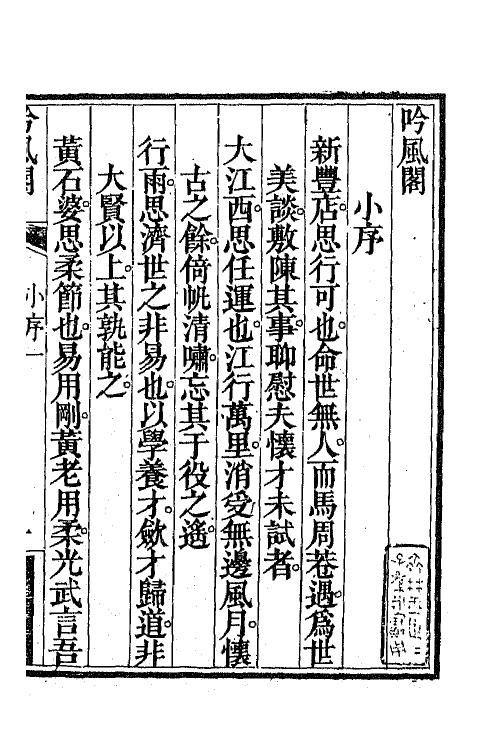 吟風閣
小序
新豐店。思行可也。命世無人。而馬周巷遇。爲世
美談。敷陳其事。聊慰夫懷才未試者。
大江西。思任運也。江行萬里。消受無邊風月。懷
古之餘。倚帆清嘯。忘其于役之遙。
行雨。思濟世之非易也。以學養才。歛才歸道。非
大賢以上。其孰能之。
黃石婆。思柔節也。易用剛。黃老用柔。光武言吾
吟風閣
小序
一